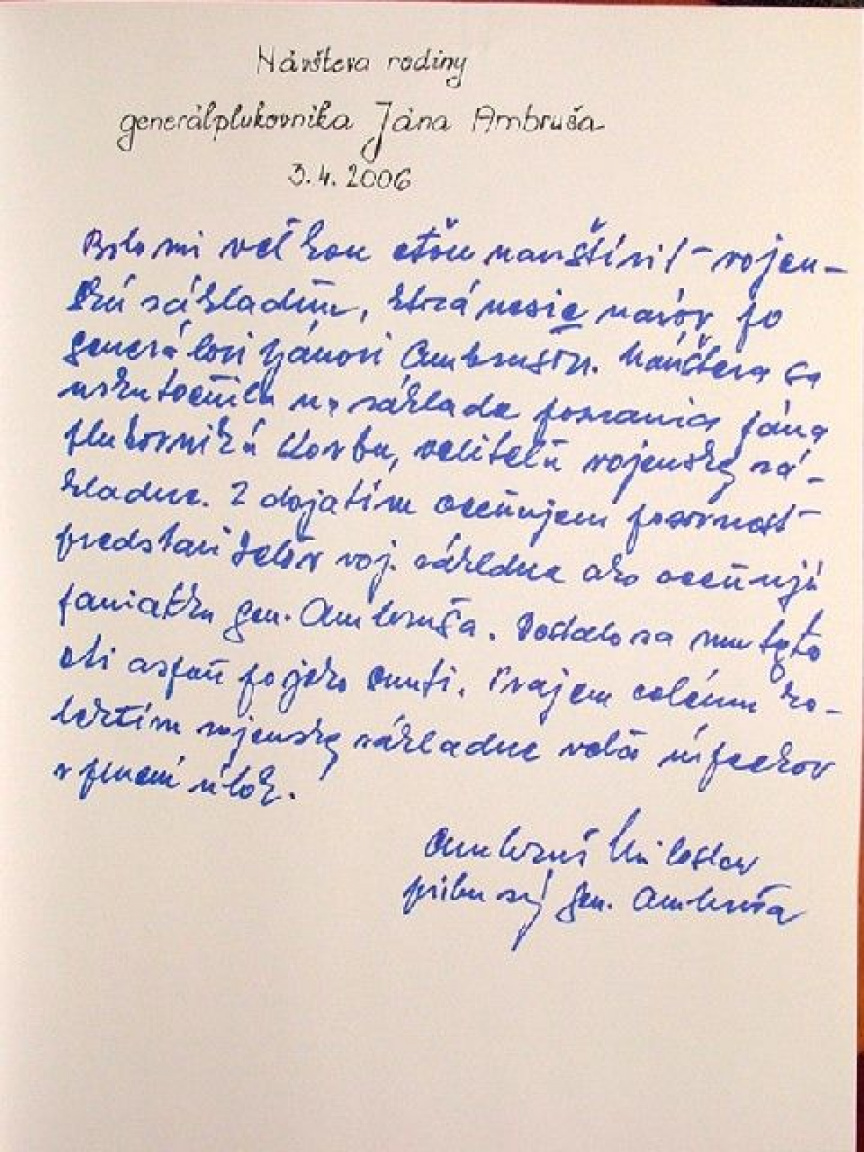 Návšteva rodiny
generálplukovníka Jána Ambruša
3.4.2006
Bolo mi veľkou cťou navštíviť vojen-
skú základňu, ktorá nesie názov po
generálovi Jánovi Ambrušovi. Návšteva sa
uskutočnila na základe pozvania pána
plukovníka velitela vojenskej zá-
kladne. S dojatím oceňujem pozornosť
predstaviteľov voj. základne ako oceňujú
pamiatku gen. Ambruša. Dostalo sa mu tejto
cti aspoň po jeho smrti. Prajem celému ko-
lektívu vojenskej základne veľa úspechov
v plnení úloh.
Ambruš Miloslav
príbuzný gen. Ambruša